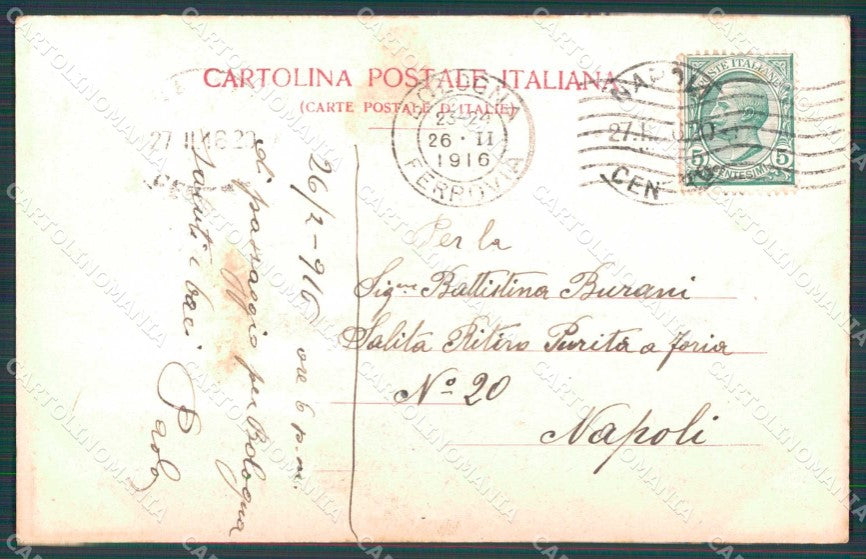 CARTOLINA POSTALE ITALIANA
(CARTE POSTALE D'ITALIE)
MODENA
23-24
26 · II
1916
FERROVIA
NAPOLI
20
CEN
POSTE ITALIANE
5 5
CENTESIMI
27 II 16 20
26/2-916 ore 6 p.m.
di passaggio per Bologna
saluti e baci
Paola
Per la
Sig.na Battistina Burani
Salita Ritiro Purità a Foria
Nº 20
Napoli
CARTOLINOMANIA